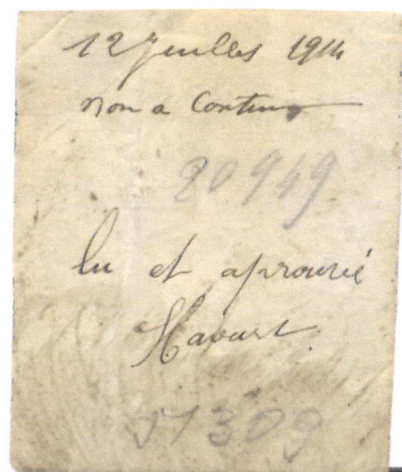 12 Juilles 1914
non a Contenu
20949
lu et aprouvé
Havart
51309